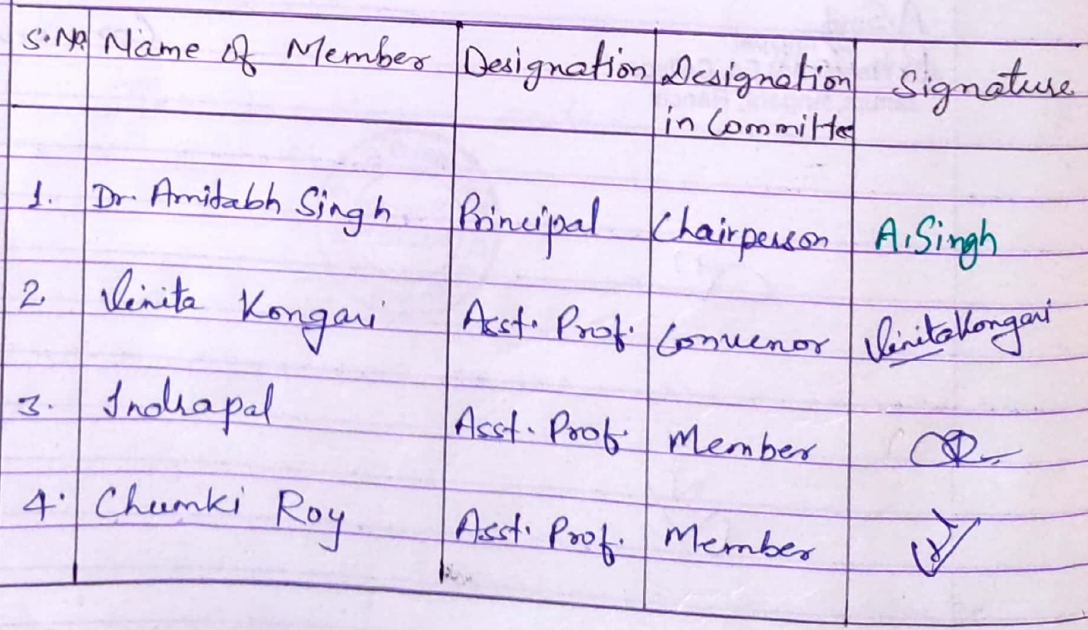 S.No. Name of Member Designation Designation in Committee Signature
1. Dr. Amitabh Singh Principal Chairperson A.Singh
2. Vinita Kongari Asst. Prof. Convenor Vinita Kongari
3. Indrapal Asst. Prof. Member
4. Chumki Roy Asst. Prof. Member